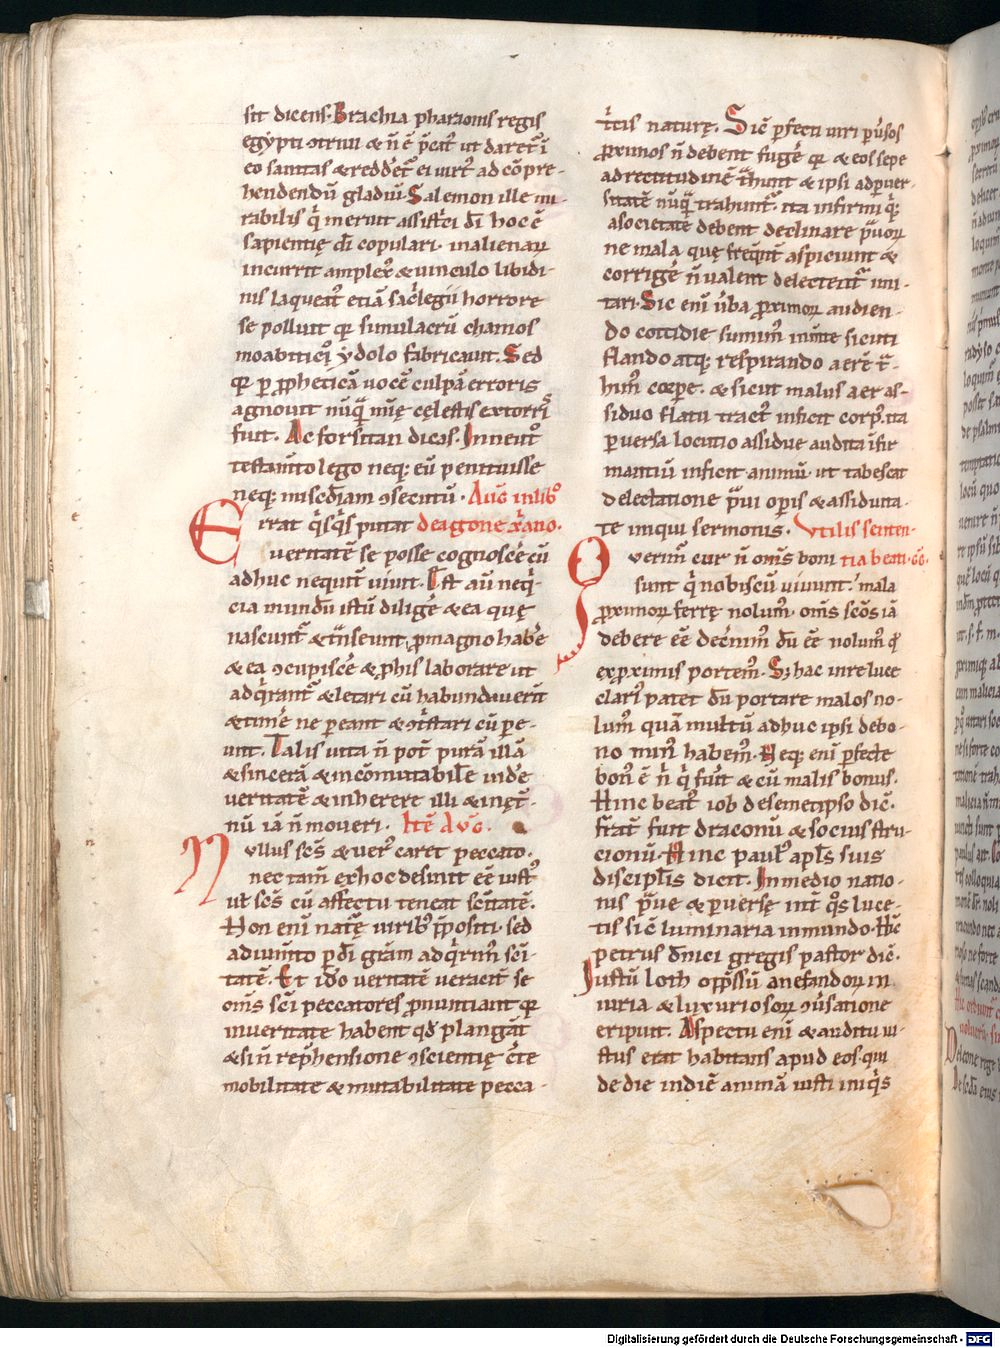 sit dicens. Brachia pharaonis regis
egypti ꝯtriui & n̄ ē p̄cat᷒ ut daret᷒ ī
eo sanitas & redderet᷒ ei uirt᷒ ad cōpre-
hendendū gladiū. Salemon ille mi-
rabilis q̇ meruit assistrici dī hoc ē
sapientię dī copulari. inalienarꝝ
incurrit amplex᷒ & uinculo libidi-
nis laqueat᷒ etiā sac̄legii horrore
se polluit qꝛ simulacrū chamos
moabiticę ydolo fabricauit. Sed
qꝛ ꝑ ꝓpheticā uocē culpā erroris
agnouit nūq̄ mīę cęlestis extorris
fuit. Ac forsitan dicas. In neut᷒
testam̄to lego neqꝫ eū penituisse
neqꝫ misc̄diam ꝯsecutū. Auḡ in lib᷒
Errat q̇sq̇s putat de agone xp̄iano.
ueritatē se posse cognoscē cū
adhuc neq̇ter uiuit. Est aū neq̇-
cia mundū istū diligē & ea quę
nascunt᷒ & trānseunt ꝓ magno habē
& ea ꝯcupiscē & ꝓ his laborare ut
adq̇rant᷒ & letari cū habundauerīt
& timē ne pereant & ꝯtristari cū pe-
unt. Talis uita n̄ pot̄ purā illā
& sincerā & incōmutabilē uidē
ueritatē & inherere illi & in ęt̄-
nū iā n̄ moueri. Itē Auḡ.
Nullus scs̄ & uer᷒ caret peccato.
nec tam̄ ex hoc desinit eē iust᷒
ut̄ scs̄ cū affectu teneat sc̄itatē.
Non enī nat̄ę uirib᷒ ꝓpositi. sed
adium̄to ꝑ dī grām adq̇rim᷒ scī-
tatē. Et ido ueritatē ueracit̄ se
oms̄ scī peccatores ꝓnuntiant qꝛ
in ueritate habent qd̄ plangāt
& si n̄ rep̄hensione ꝯscientię c̄te
mobilitate & mutabilitate pecca-
t̄cis naturę. Sic̄ ꝑfecti uiri ꝑuersos
ꝓximos n̄ debent fugē qꝛ & eos sepe
ad rectitudinē t̄hunt & ipsi ad ꝑuer-
sitatē nūq̄ trahunt᷒. ita infirmi q̇qꝫ
a societate debent declinare ꝑuorꝝ
ne mala quę freq̄nt̄ aspiciunt &
corrigē n̄ ualent delectent᷒ imi-
tari. Sic enī ūba ꝓximorꝝ audien-
do cottidie sumim᷒ in m̄te sicuti
flando atqꝫ respirando aerē t̄-
him᷒ corpe. & sicut malus aer as-
siduo flatu tract᷒ inficit corp᷒. ita
peruersa locutio assidue audita īfir-
mantiū inficit animū. ut tabescat
delectatione ꝑui opis & assidui-
te iniqui sermonis. Vtilis senten-
Querim᷒ cur n̄ om̄s boni tia beati g̅g̅.
sunt q̇ nobiscū uiuunt. mala
ꝓximorꝝ ferre nolum᷒. om̄s scōs iā
debere eē decnim᷒ dū eē nolum᷒ qd̄
ex ꝓximis portem᷒. Sꝫ hac in re luce
clari᷒ patet dū portare malos no-
lum᷒ quā multū adhuc ipsi debo-
no min᷒ habem᷒. Neqꝫ enī ꝑfecte
bon᷒ ē n̄ q̇ fuit & cū malis bonus.
Hinc beat᷒ iob de semetipso dic̄.
frāt̄ fui draconū & socius stru-
cionū. Hinc paul᷒ apl̄s suis
disciplis dicit. In medio natio-
nis ꝑue & peruersę int̄ q̇s luce-
tis sic̄ luminaria in mundo. Hīc
petrus dn̄ici gregis pastor dic̄.
Iustū loth opp̄ssū a nefandorꝝ in
iuria & luxuriosorꝝ ꝯūsatione
eripuit. Aspectu enī & auditu iu-
stus erat habitans apud eos. qui
de die in diē animā iusti iniq̇s
Digitalisierung gefördert durch die Deutsche Forschungsgemeinschaft - DFG